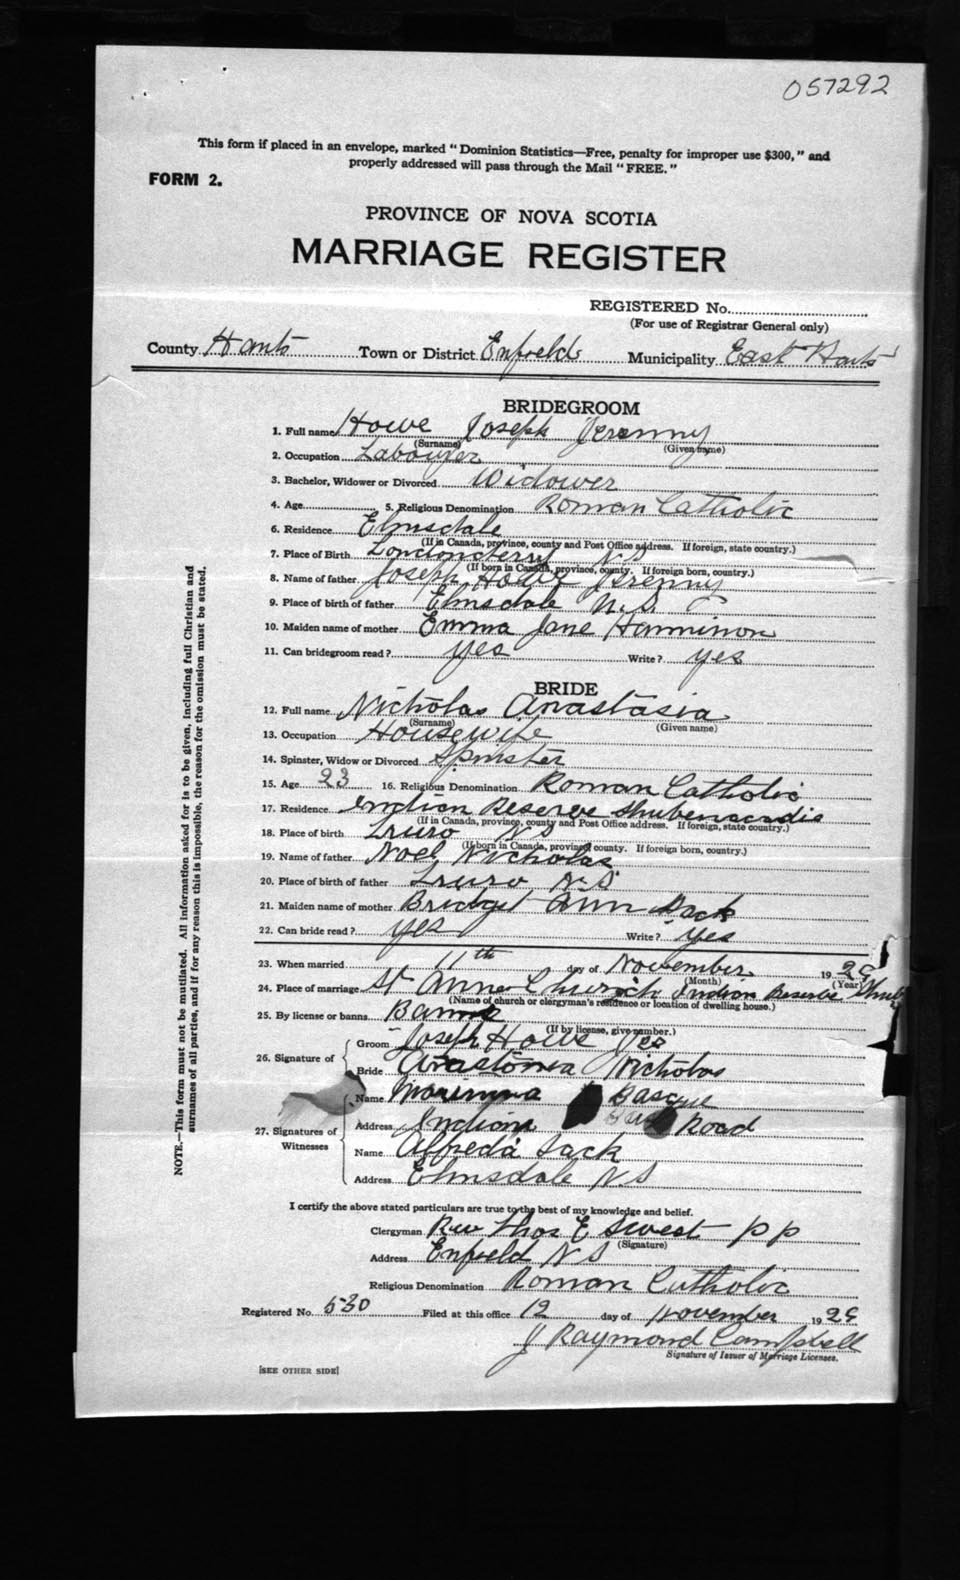 057292
This form if placed in an envelope, marked "Dominion Statistics—Free, penalty for improper use $300," and
properly addressed will pass through the Mail "FREE."
FORM 2.
PROVINCE OF NOVA SCOTIA
MARRIAGE REGISTER
REGISTERED No.
(For use of Registrar General only)
County Hants Town or District Enfield Municipality East Hants
BRIDEGROOM
1. Full name Howe Joseph Jeremy
(Surname) (Given name)
2. Occupation Labourer
3. Bachelor, Widower or Divorced Widower
4. Age 5. Religious Denomination Roman Catholic
6. Residence Elmsdale
(If in Canada, province, county and Post Office address. If foreign, state country.)
7. Place of Birth Londonderry N S
(If born in Canada, province, county. If foreign born, country.)
8. Name of father Joseph Howe Jeremy
9. Place of birth of father Elmsdale N.S.
10. Maiden name of mother Emma Jane
11. Can bridegroom read? yes Write? yes
BRIDE
12. Full name Nicholas Anastasia
(Surname) (Given name)
13. Occupation Housewife
14. Spinster, Widow or Divorced Spinster
15. Age 23 16. Religious Denomination Roman Catholic
17. Residence Indian Reserve Shubenacadie
(If in Canada, province, county and Post Office address. If foreign, state country.)
18. Place of birth Truro N S
(If born in Canada, province, county. If foreign born, country.)
19. Name of father Noel Nicholas
20. Place of birth of father Truro N S
21. Maiden name of mother Bridget Ann Sack
22. Can bride read? yes Write? yes
23. When married 11th day of November 1929
(Month) (Year)
24. Place of marriage St Anne Church Indian Reserve Shub
(Name of church or clergyman's residence or location of dwelling house.)
25. By license or banns Banns
(If by license, give number.)
26. Signature of
Groom Joseph Howe
Bride Nicholas
27. Signatures of
Witnesses
Name
Address Indian Road
Name Alfreda Sack
Address Elmsdale N S
I certify the above stated particulars are true to the best of my knowledge and belief.
Clergyman Rev Thos E Sweet P P
(Signature)
Address Enfield N S
Religious Denomination Roman Catholic
Registered No. 530 Filed at this office 12 day of November 1929
J Raymond Campbell
Signature of Issuer of Marriage Licenses.
[SEE OTHER SIDE]
NOTE.—This form must not be mutilated. All information asked for is to be given, including full Christian and
surnames of all parties, and if for any reason this is impossible, the reason for the omission must be stated.